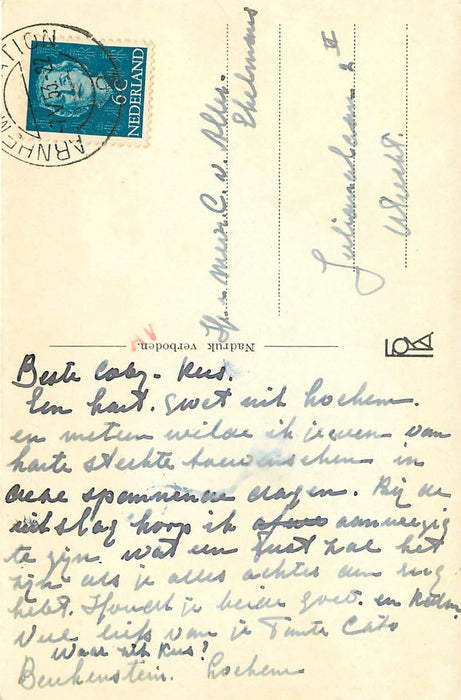 ARNHEM STATION
6 C
NEDERLAND
Hr. en Mevr. C. v. Allen.
Ekelmans
Julianalaan 2 II
Utrecht.
Nadruk verboden.
Beste Coby - Kees.
Een hart. groet uit Lochem.
en meteen wilde ik je even van
harte sterkte toewenschen in
deze spannende dagen. Bij de
uitslag hoop ik aanwezig
te zijn. wat een rust zal het
zijn als je alles achter den rug
hebt. Houdt je beide goed. en
Veel liefs van je Tante Cato
Waar zit Kees?
Beukenstein. Lochem